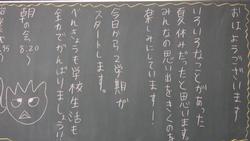 おはようございます
いろいろなことがあった
夏休みだったと思います。
みんなの思い出をきくのを
楽しみにしています!!
今日から2学期が
スタートします。
べんきょうも学校生活も
全力でがんばりましょう!!
朝の会
8:20〜